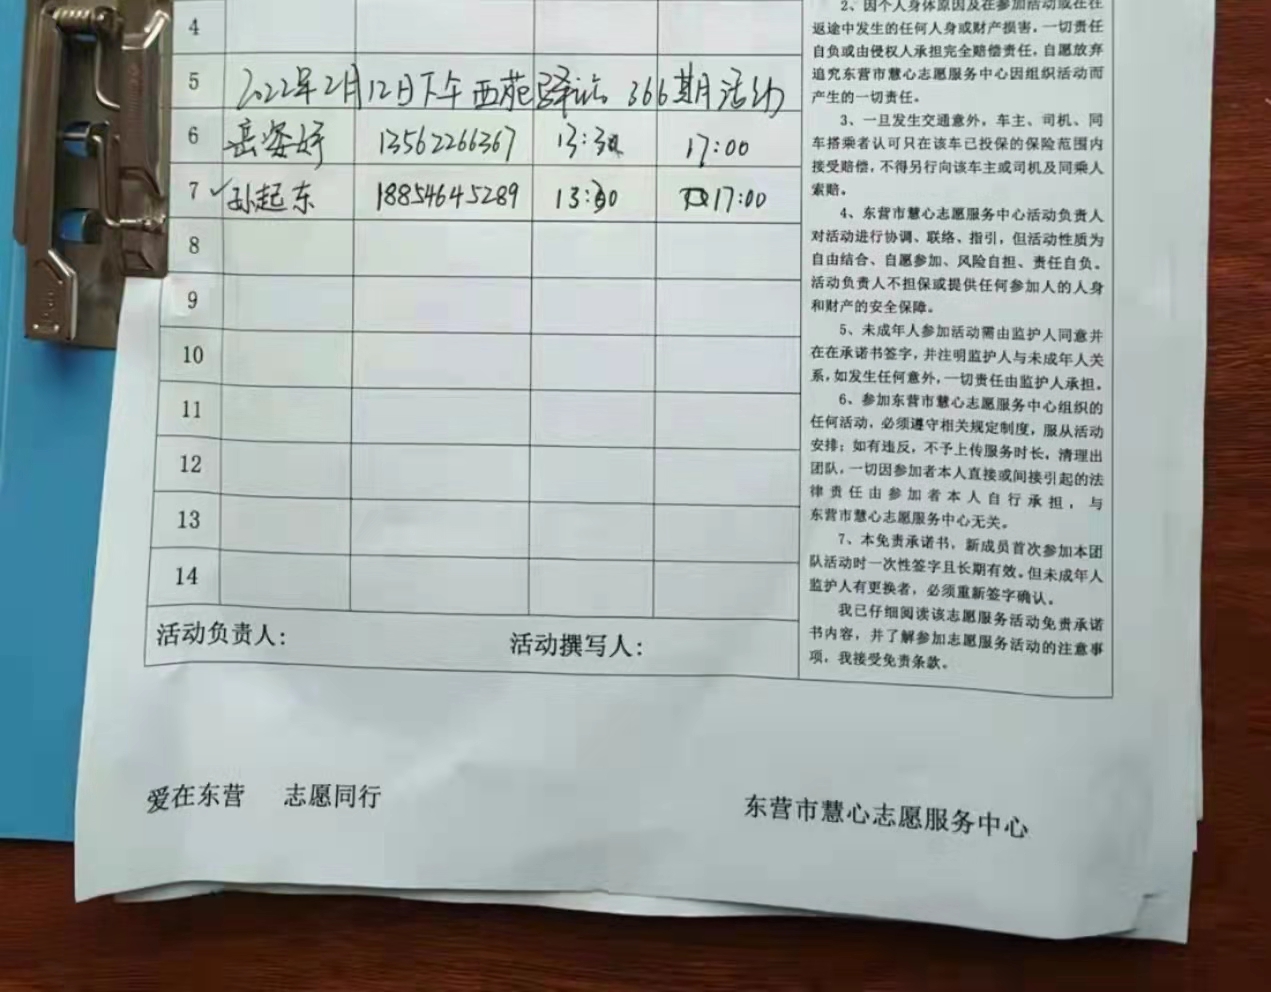 4
5 2022年2月12日下午西苑驿站 366期活动
6 岳姿妤 13562266367 13:30 17:00
7 孙起东 18854645289 13:30 17:00
8
9
10
11
12
13
14
活动负责人: 活动撰写人:
2、因个人身体原因及在参加活动或在往
返途中发生的任何人身或财产损害，一切责任
自负或由侵权人承担完全赔偿责任，自愿放弃
追究东营市慧心志愿服务中心因组织活动而
产生的一切责任。
3、一旦发生交通意外，车主、司机、同
车搭乘者认可只在该车已投保的保险范围内
接受赔偿，不得另行向该车主或司机及同乘人
索赔。
4、东营市慧心志愿服务中心活动负责人
对活动进行协调、联络、指引，但活动性质为
自由结合、自愿参加、风险自担、责任自负。
活动负责人不担保或提供任何参加人的人身
和财产的安全保障。
5、未成年人参加活动需由监护人同意并
在在承诺书签字，并注明监护人与未成年人关
系，如发生任何意外，一切责任由监护人承担。
6、参加东营市慧心志愿服务中心组织的
任何活动，必须遵守相关规定制度，服从活动
安排；如有违反，不予上传服务时长，清理出
团队，一切因参加者本人直接或间接引起的法
律责任由参加者本人自行承担，与
东营市慧心志愿服务中心无关。
7、本免责承诺书，新成员首次参加本团
队活动时一次性签字且长期有效。但未成年人
监护人有更换者，必须重新签字确认。
我已仔细阅读该志愿服务活动免责承诺
书内容，并了解参加志愿服务活动的注意事
项，我接受免责条款。
爱在东营 志愿同行
东营市慧心志愿服务中心